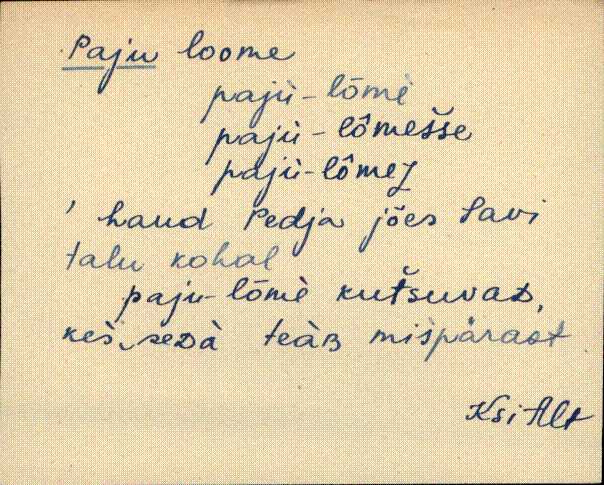 Paju loome
pajù-lōmè
pajù-lômešse
pajù-lômeʒ
' haud Pedja jões Savi
talu kohal
paju-lōmè kutšuvaᴅ,
keš, seᴅà teàʙ mišpärast
Ksi Alt